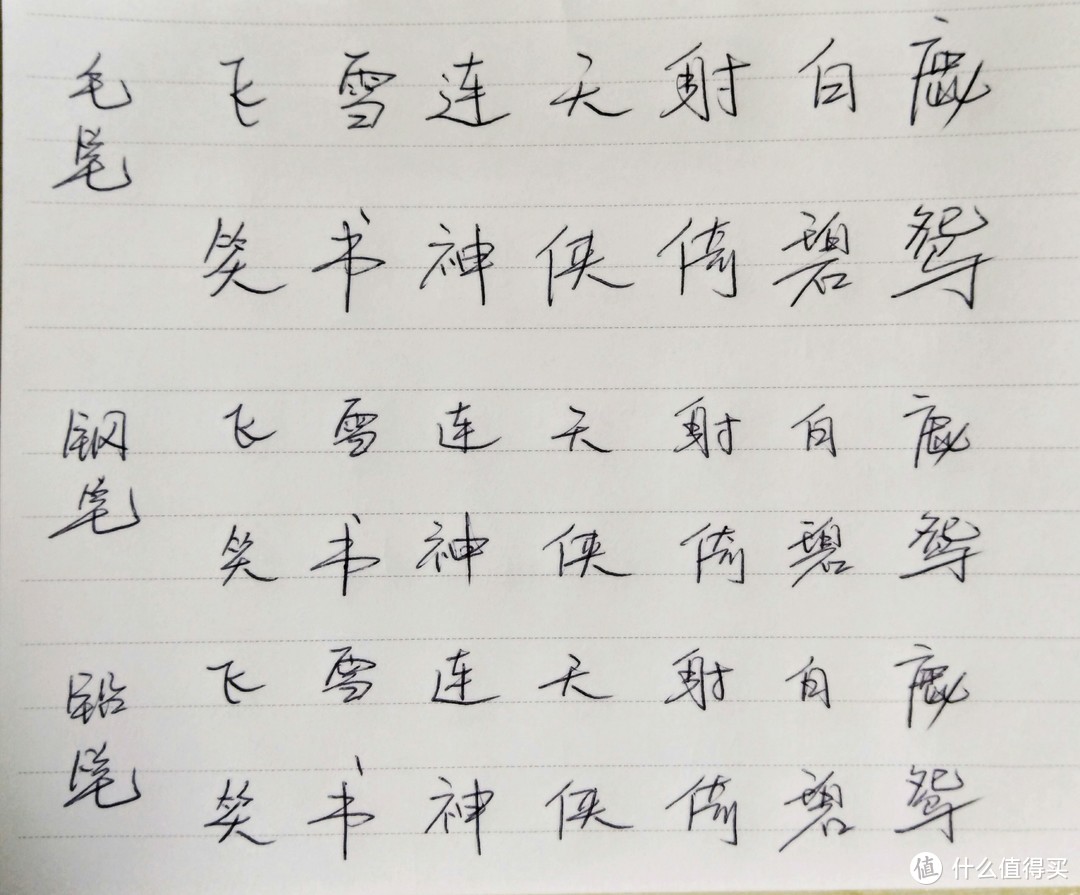 毛笔 飞雪连天射白鹿
笑书神侠倚碧鸳
钢笔 飞雪连天射白鹿
笑书神侠倚碧鸳
铅笔 飞雪连天射白鹿
笑书神侠倚碧鸳
值 什么值得买